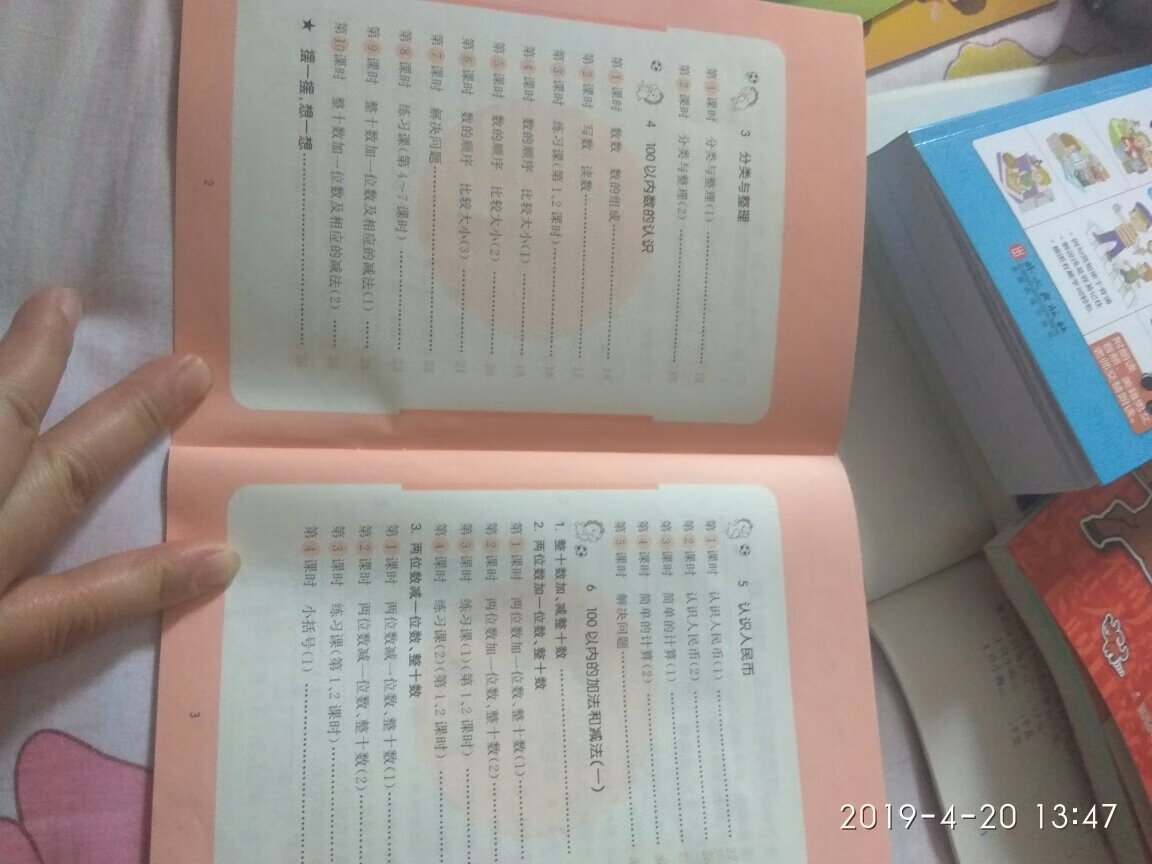 3 分类与整理
第1课时 分类与整理(1)
第2课时 分类与整理(2)
4 100以内数的认识
第1课时 数数 数的组成
第2课时 写数 读数
第3课时 练习课(第1、2课时)
第4课时 数的顺序 比较大小(1)
第5课时 数的顺序 比较大小(2)
第6课时 数的顺序 比较大小(3)
第7课时 解决问题
第8课时 练习课(第4~7课时)
第9课时 整十数加一位数及相应的减法(1)
第10课时 整十数加一位数及相应的减法(2)
★ 摆一摆,想一想
2
5 认识人民币
第1课时 认识人民币(1)
第2课时 认识人民币(2)
第3课时 简单的计算(1)
第4课时 简单的计算(2)
第5课时 解决问题
6 100以内的加法和减法(一)
1. 整十数加、减整十数
2. 两位数加一位数、整十数
第1课时 两位数加一位数、整十数(1)
第2课时 两位数加一位数、整十数(2)
第3课时 练习课(1)(第1、2课时)
第4课时 练习课(2)(第1、2课时)
3. 两位数减一位数、整十数
第1课时 两位数减一位数、整十数(1)
第2课时 两位数减一位数、整十数(2)
第3课时 练习课(第1、2课时)
第4课时 小括号(1)
3
2019-4-20 13:47